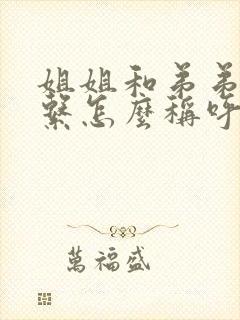 姐姐和弟弟
繫怎麼稱呼
萬福盛